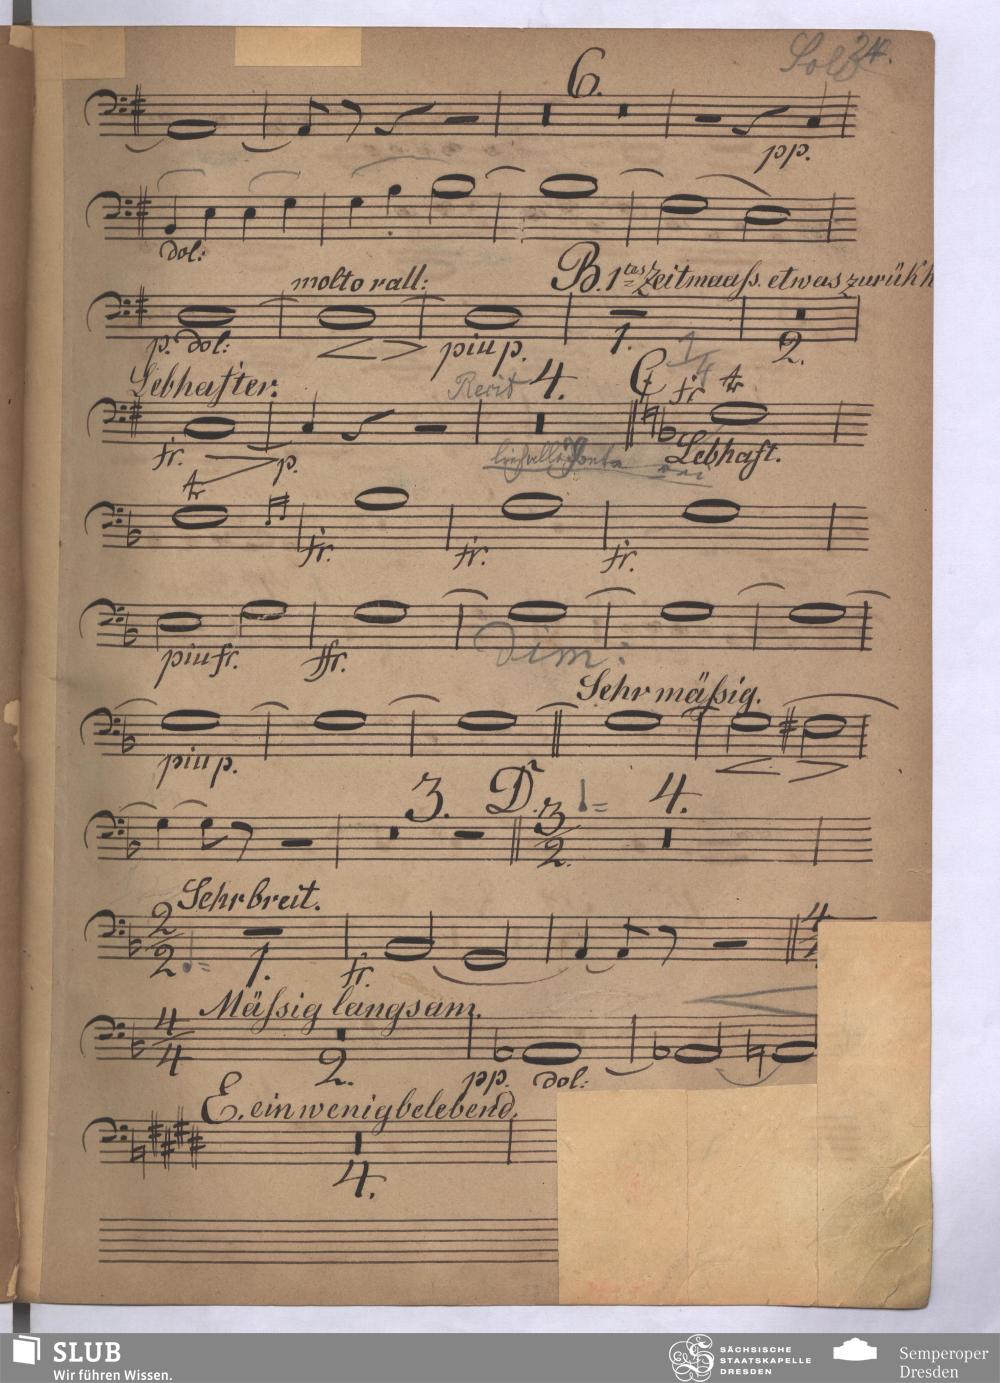 Solo 24.
6.
pp.
dol:
molto rall: B. 1tes Zeitmaass. etwas zurükh
p. dol: piu p. 1. 2.
Lebhafter. Recit 4. C fr tr 1/4
fr. p. Lebhaft.
tr
fr. fr. fr.
piu fr. ffr. Dim:
Sehr mäßig.
piu p.
3. D. 3/2 = 4.
Sehr breit.
2/2 = 1. fr. 4
Mäßig langsam.
4/4 2. pp. dol:
E. ein wenig belebend.
4.
SLUB
Wir führen Wissen.
SÄCHSISCHE
STAATSKAPELLE
DRESDEN
Semperoper
Dresden